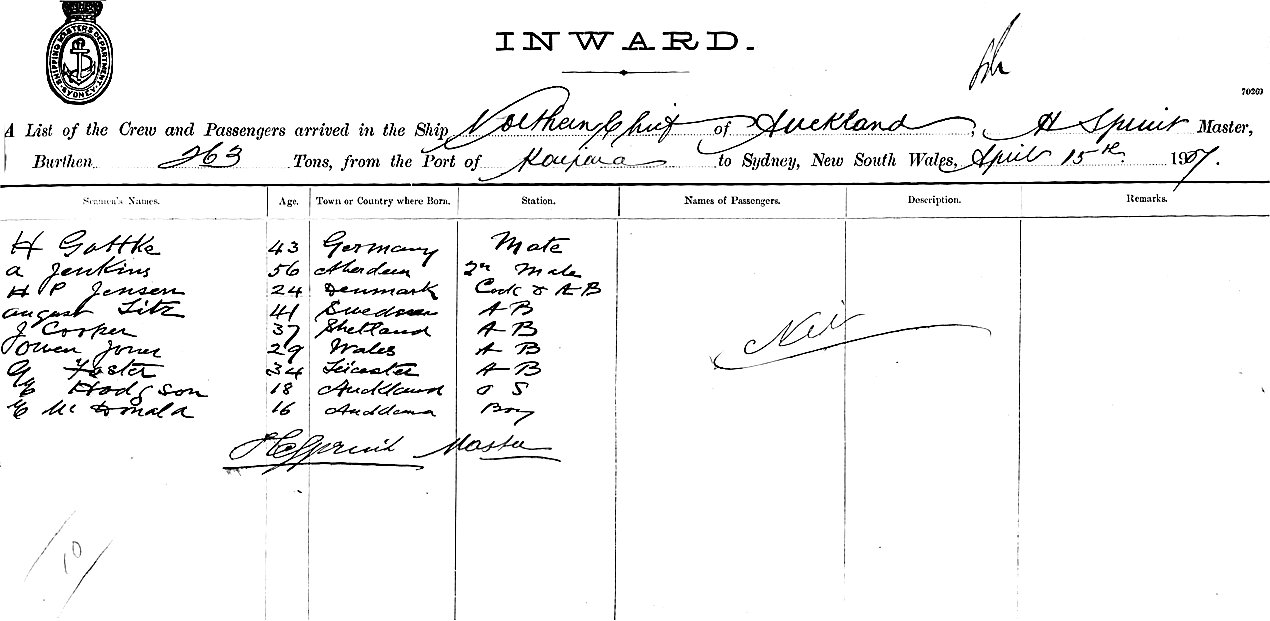 SHIPPING MASTERS DEPARTMENT
SYDNEY
INWARD.
70269
A List of the Crew and Passengers arrived in the Ship Northern Chief of Auckland, H Spruit Master,
Burthen 263 Tons, from the Port of Kaipara to Sydney, New South Wales, April 15th 1907.
Seamen's Names. Age. Town or Country where Born. Station. Names of Passengers. Description. Remarks.
H Gattke 43 Germany Mate
A Jenkins 56 Aberdeen 2nd Mate
H P Jensen 24 Denmark Cook & AB
August Titz 41 Sweden A B
J Cooper 37 Shetland A B
Owen Jones 29 Wales A B
G Foster 34 Leicester A B
E Hodgson 18 Auckland O S
E McDonald 16 Boy
Nil
Spruit Master
10